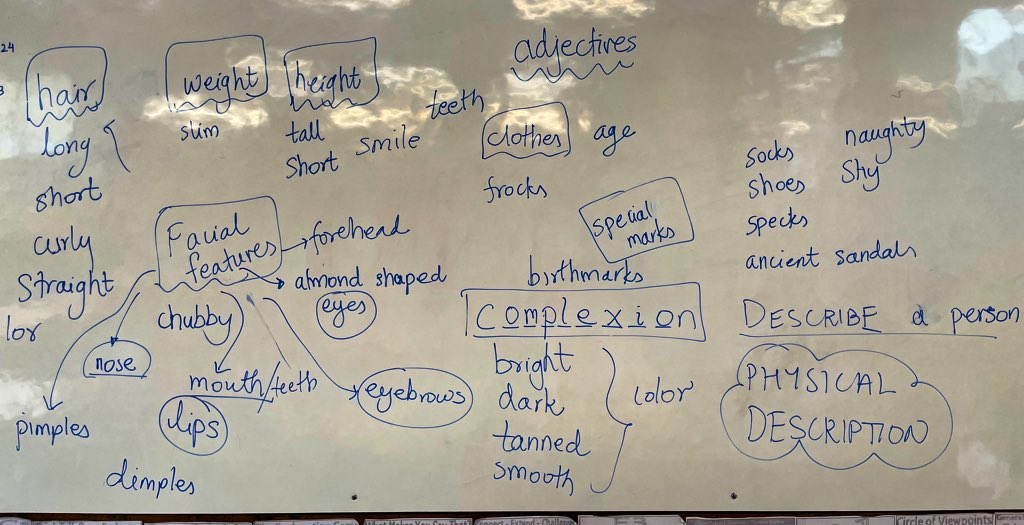 24
adjectives
hair
weight
height
long
short
curly
Straight
lor
slim
tall
Short
smile
teeth
clothes
age
frocks
special
marks
birthmarks
socks
shoes
specks
ancient sandals
naughty
Shy
Facial
features
forehead
almond shaped
eyes
chubby
nose
mouth/teeth
lips
eyebrows
pimples
dimples
Complexion
bright
dark
tanned
smooth
color
DESCRIBE a person
PHYSICAL
DESCRIPTION
Circle of Viewpoints